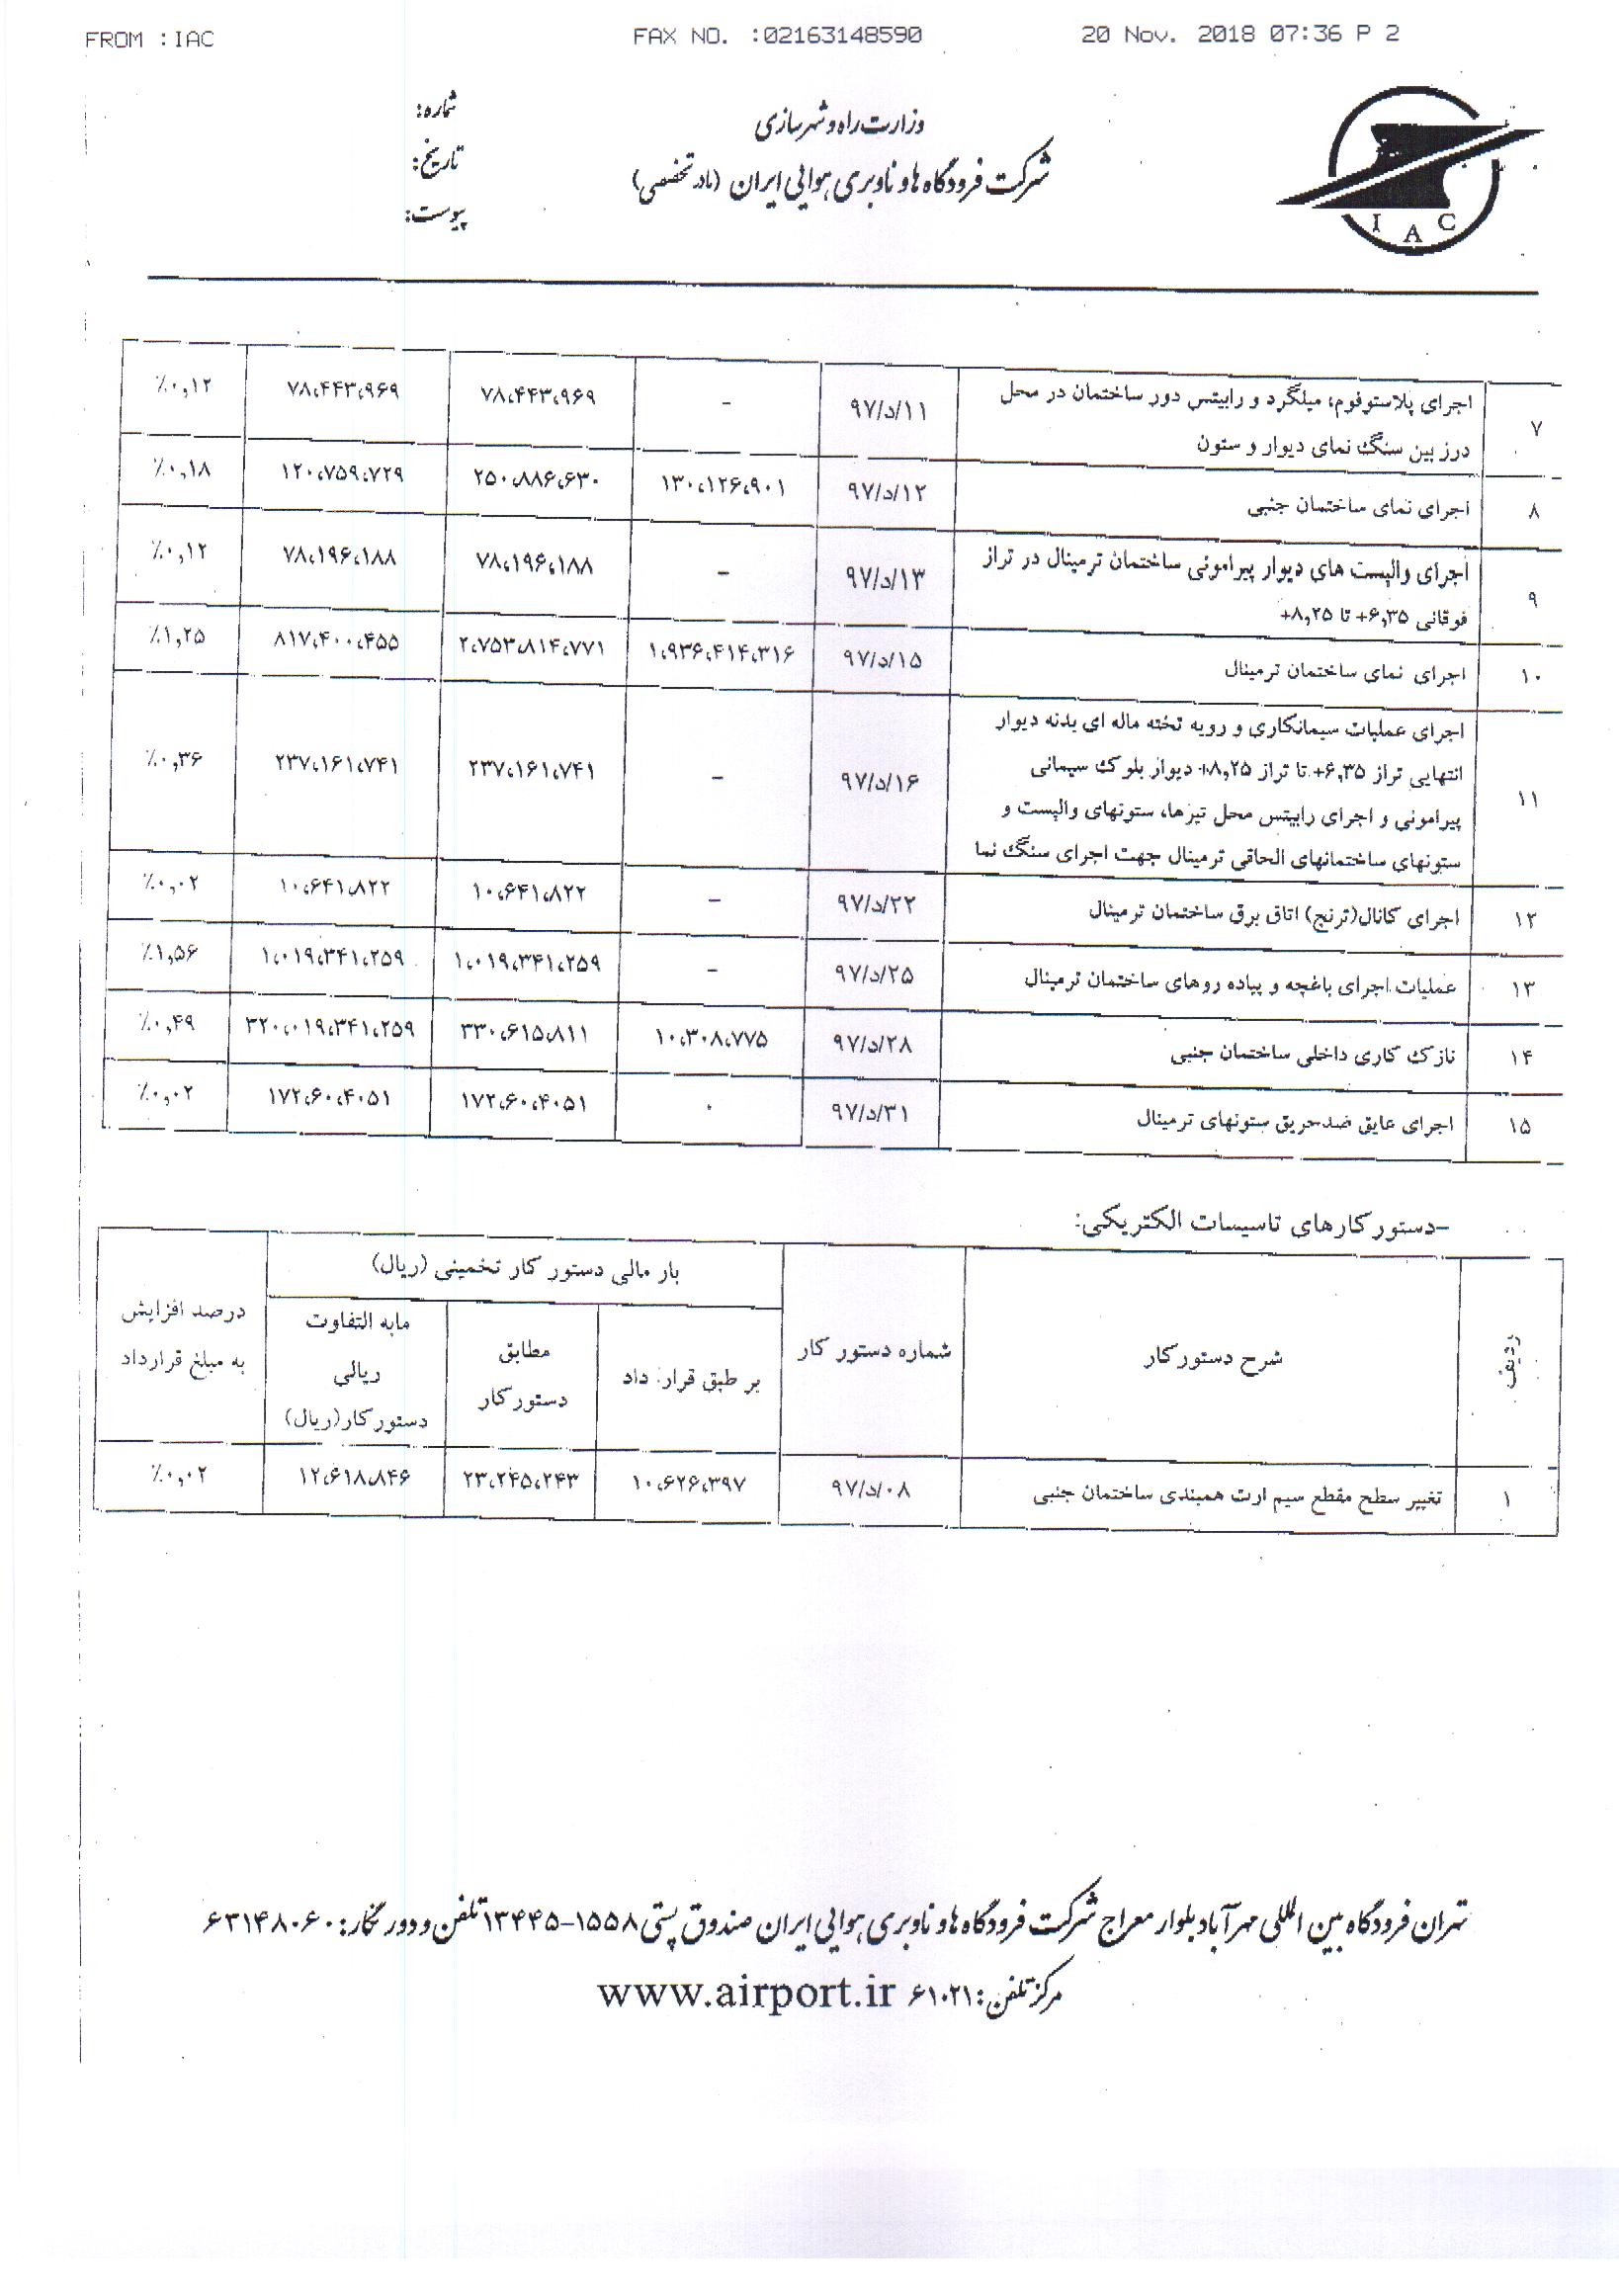 FROM :IAC FAX NO. :02163148590 20 Nov. 2018 07:36 P 2
وزارت راه و شهرسازی
شرکت فرودگاه ها و ناوبری هوایی ایران (مادر تخصصی)
شماره:
تاریخ:
پیوست:
I A C
۷ اجرای پلاستوفوم، میلگرد و رابیتس دور ساختمان در محل ۹۷/د/۱۱ - ۷۸،۴۴۳،۹۶۹ ۷۸،۴۴۳،۹۶۹ ٪۰,۱۲
درز بین سنگ نمای دیوار و ستون
۸ اجرای نمای ساختمان جنبی ۹۷/د/۱۲ ۱۳۰،۱۲۶،۹۰۱ ۲۵۰،۸۸۶،۶۳۰ ۱۲۰،۷۵۹،۷۲۹ ٪۰,۱۸
۹ اجرای والپست های دیوار پیرامونی ساختمان ترمینال در تراز ۹۷/د/۱۳ - ۷۸،۱۹۶،۱۸۸ ۷۸،۱۹۶،۱۸۸ ٪۰,۱۲
فوقانی ۶,۳۵+ تا ۸,۲۵+
۱۰ اجرای نمای ساختمان ترمینال ۹۷/د/۱۵ ۱،۹۳۶،۴۱۴،۳۱۶ ۲،۷۵۳،۸۱۴،۷۷۱ ۸۱۷،۴۰۰،۴۵۵ ٪۱,۲۵
۱۱ اجرای عملیات سیمانکاری و رویه تخته ماله ای بدنه دیوار ۹۷/د/۱۶ - ۲۳۷،۱۶۱،۷۴۱ ۲۳۷،۱۶۱،۷۴۱ ٪۰,۳۶
انتهایی تراز ۶,۳۵+ تا تراز ۸,۲۵+ دیوار بلوک سیمانی
پیرامونی و اجرای رابیتس محل تیرها، ستونهای والپست و
ستونهای ساختمانهای الحاقی ترمینال جهت اجرای سنگ نما
۱۲ اجرای کانال(ترنچ) اتاق برق ساختمان ترمینال ۹۷/د/۲۲ - ۱۰،۶۴۱،۸۲۲ ۱۰،۶۴۱،۸۲۲ ٪۰,۰۲
۱۳ عملیات اجرای باغچه و پیاده روهای ساختمان ترمینال ۹۷/د/۲۵ - ۱،۰۱۹،۳۴۱،۲۵۹ ۱،۰۱۹،۳۴۱،۲۵۹ ٪۱,۵۶
۱۴ نازک کاری داخلی ساختمان جنبی ۹۷/د/۲۸ ۱۰،۳۰۸،۷۷۵ ۳۳۰،۶۱۵،۸۱۱ ۳۲۰،۰۱۹،۳۴۱،۲۵۹ ٪۰,۴۹
۱۵ اجرای عایق ضدحریق ستونهای ترمینال ۹۷/د/۳۱ ۰ ۱۷۲،۶۰،۴۰۵۱ ۱۷۲،۶۰،۴۰۵۱ ٪۰,۰۲
-دستور کارهای تاسیسات الکتریکی:
ردیف شرح دستورکار شماره دستور کار بار مالی دستور کار تخمینی (ریال) درصد افزایش به مبلغ قرارداد
بر طبق قرار داد مطابق دستورکار مابه التفاوت ریالی دستورکار(ریال)
۱ تغییر سطح مقطع سیم ارت همبندی ساختمان جنبی ۹۷/د/۰۸ ۱۰،۶۲۶،۳۹۷ ۲۳،۲۴۵،۲۴۳ ۱۲،۶۱۸،۸۴۶ ٪۰,۰۲
تهران فرودگاه بین المللی مهرآباد بلوار معراج شرکت فرودگاه ها و ناوبری هوایی ایران صندوق پستی ۱۵۵۸-۱۳۴۴۵ تلفن و دورنگار: ۶۳۱۴۸۰۶۰
مرکز تلفن: ۶۱۰۲۱ www.airport.ir